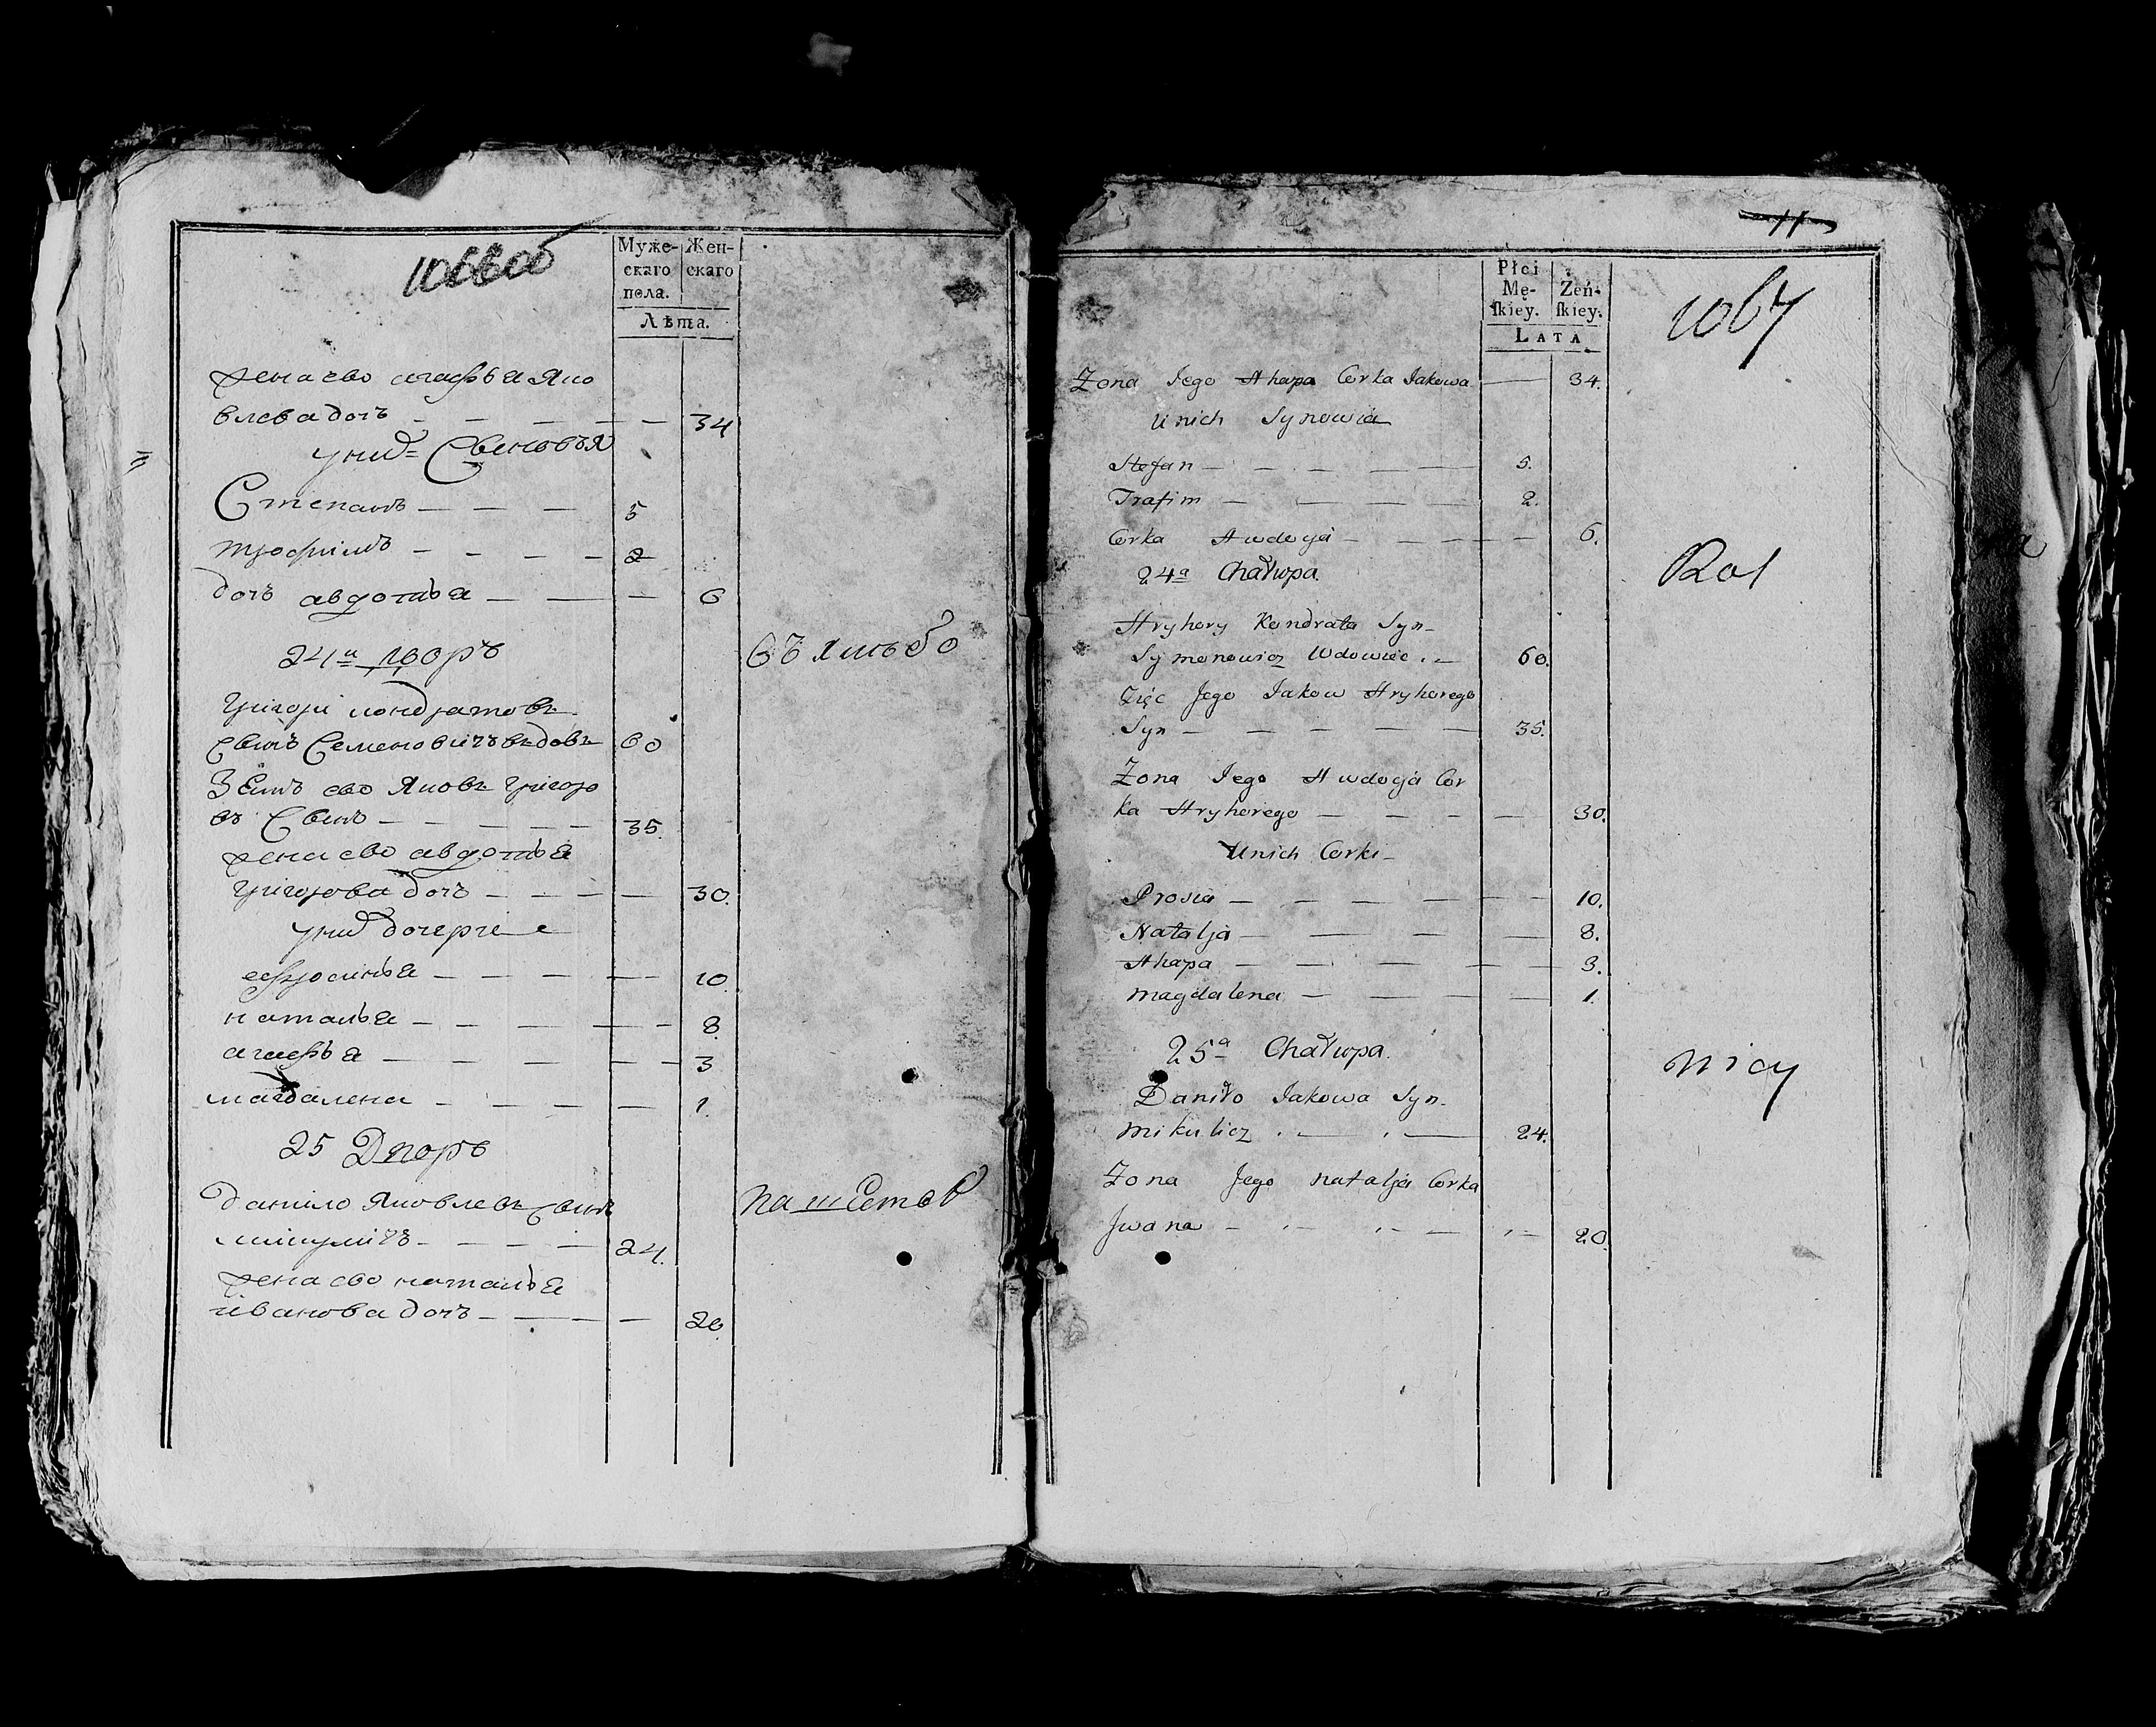 1066об
Муже-
скаго
пола.
Жен-
скаго
Лѣта.
жена ево агафья Яко
влева дочь — — — — — 34
у них Сыновья
Степанъ — — — 5
трофимъ — — — — 2
дочь авдотья — — — 6
24а дворъ
Григори кондратовъ
Сынъ Семеновичъ вдовъ 60
Зять ево Яковъ григоро
въ Сынъ — — — — — 35.
жена ево авдотья
григорова дочь — — — — 30.
у них дочери
ефросинья — — — — 10
наталья — — — — — 8.
агафья — — — — — 3
магдалена — — — — 1.
25 Дворъ
данило Яковлевъ Сынъ
микуличъ — — — — 24.
жена ево наталья
иванова дочь — — — — 20.
11
Płci
Mę-
ſkiey.
Zeń-
ſkiey.
LATA
1067
Zona Jego Ahapa Corka Jakowa — 34.
U nich Synowia
Stefan — — — — — 5.
Trafim — — — — 2.
Corka Awdocja — — — — — 6.
24a Chałupa.
Rol
Hryhory Kondrata Syn
Symonowicz Wdowiec . — 60.
Zięc Jego Jakow Hryhorego
Syn — — — — — 35.
Zona Jego Awdocja Cor
ka Hryhorego — — — — — 30.
U nich Corki
Prosia — — — — — — — 10.
Natalja — — — — 8.
Ahapa — — — — — 3.
Magdalena — — — — 1.
25a Chałupa.
nicy
Daniło Jakowa Syn
Mikulicz . — . — 24.
Zona Jego Natalja Corka
Jwana — — — — — 20.